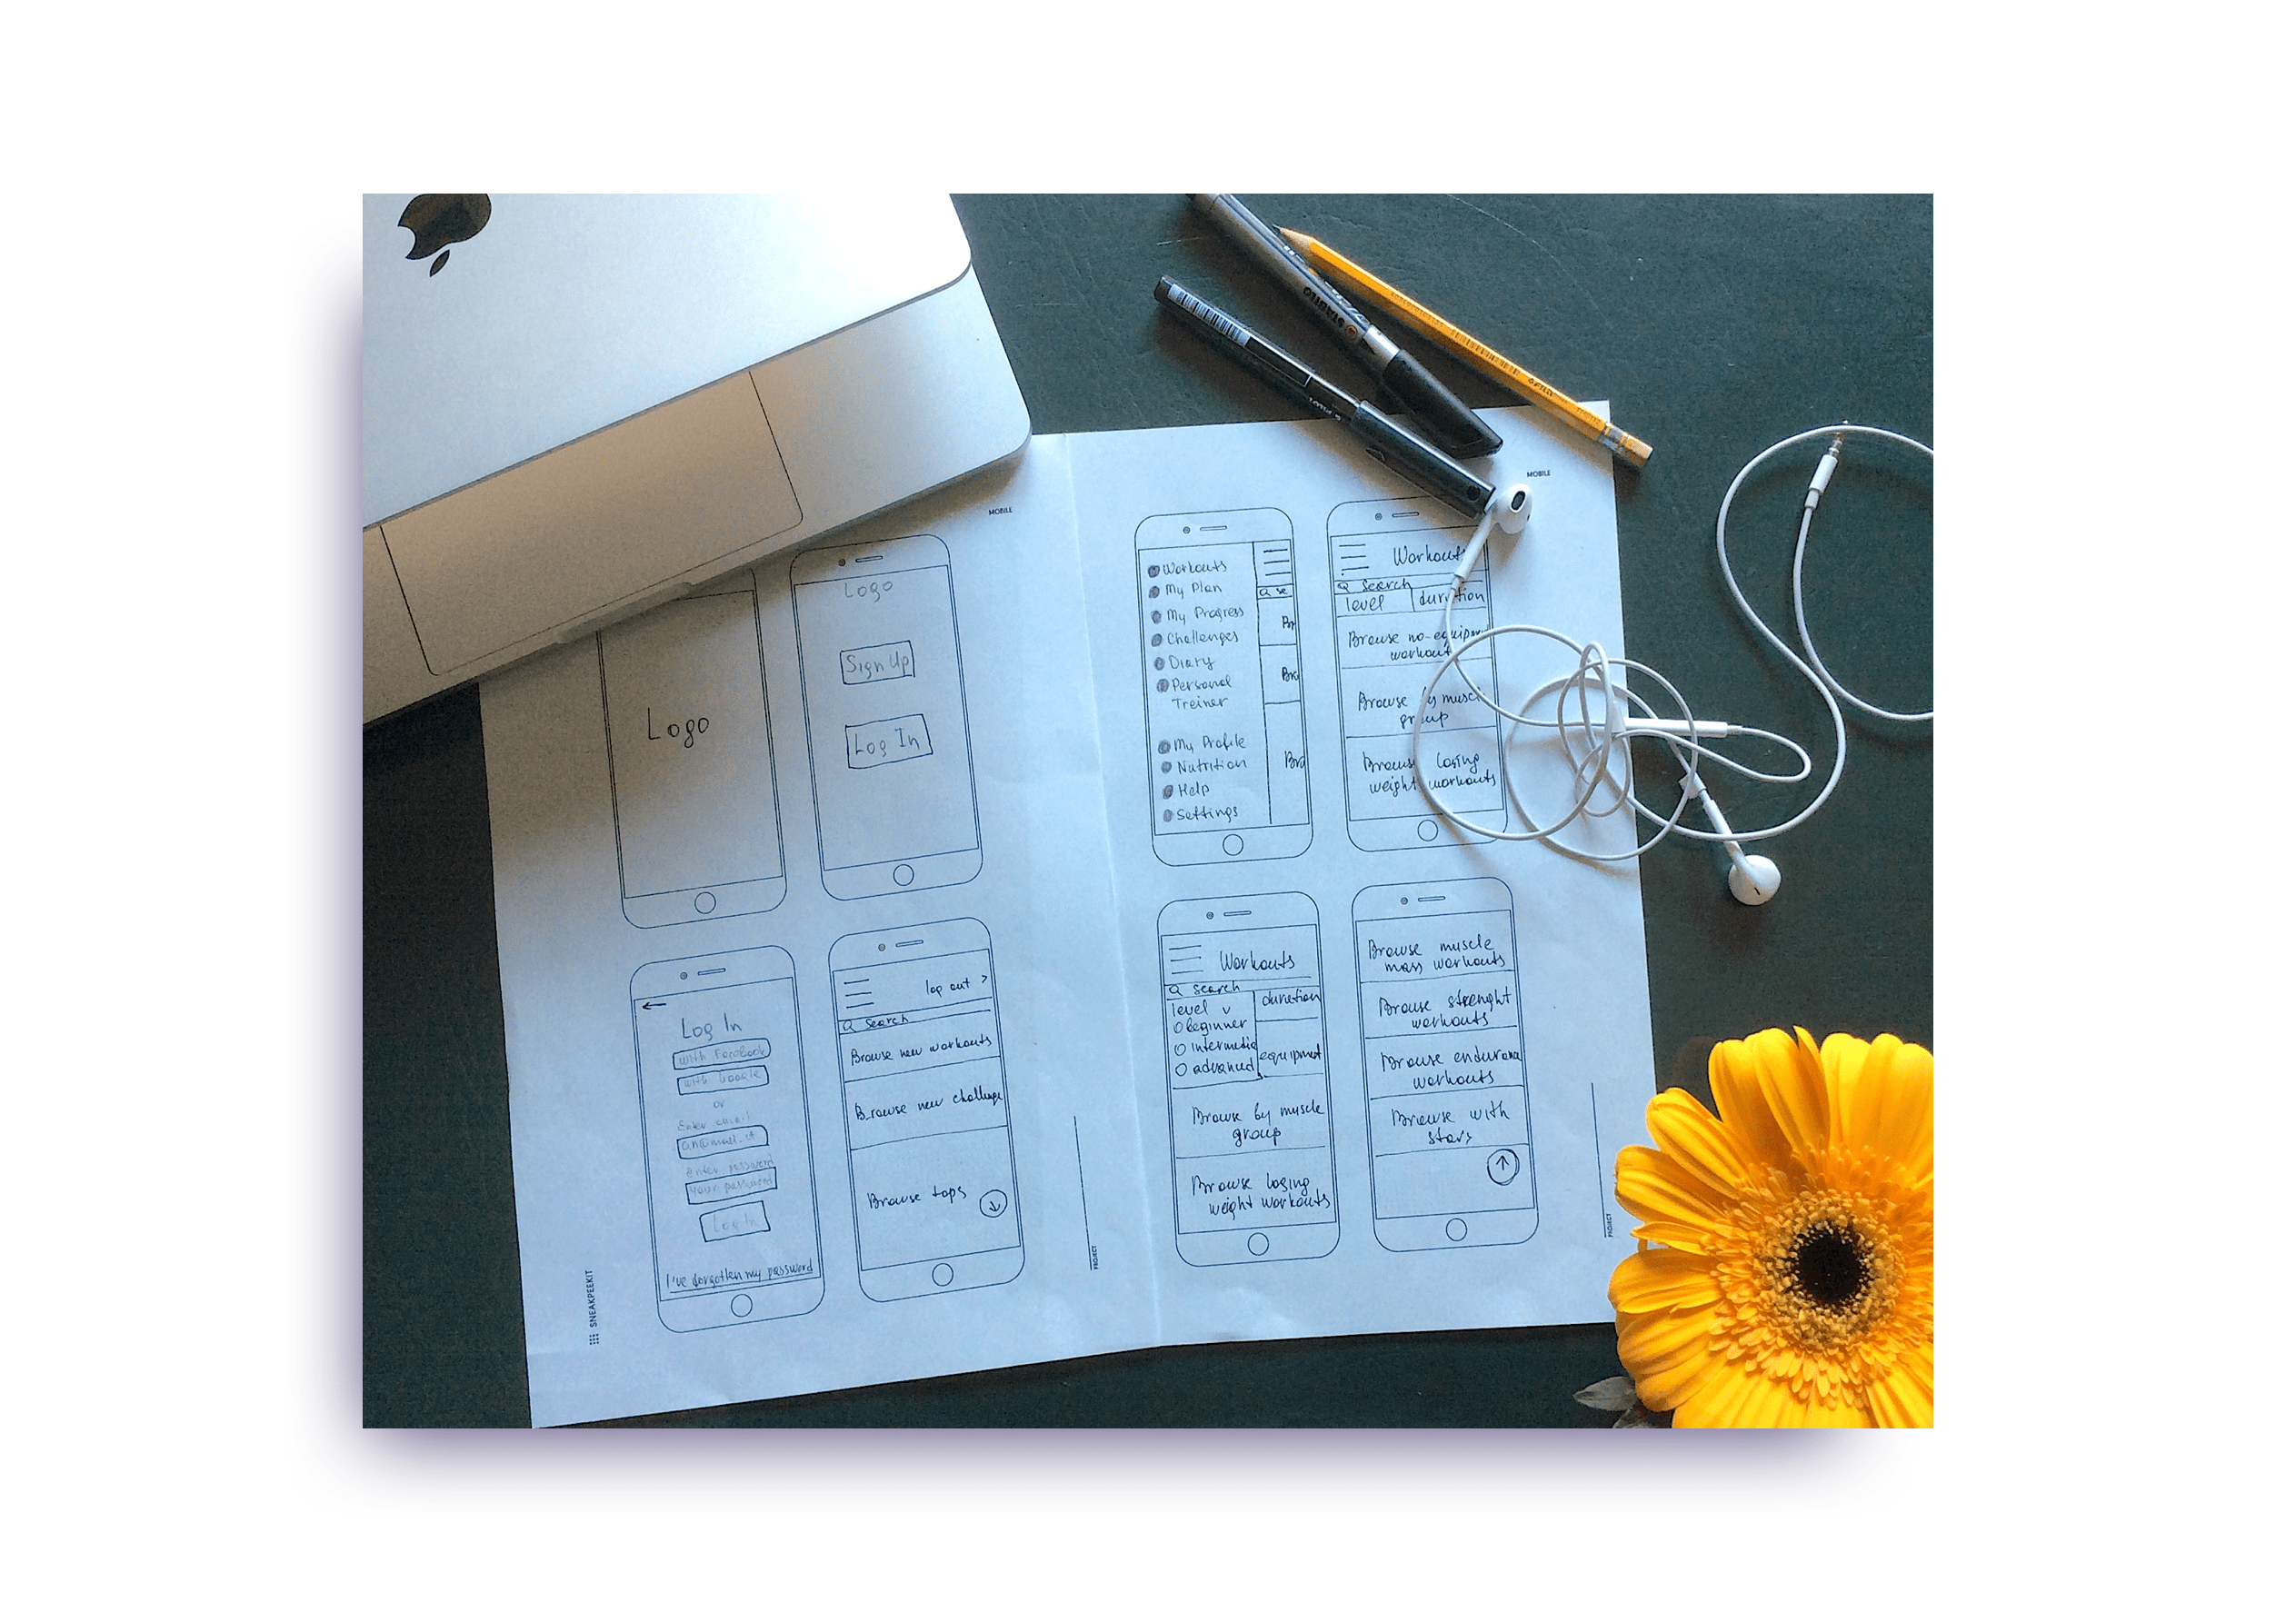 STABILO
PILOT
MOBILE
Logo
Logo
Sign Up
Log In
←
Log In
with Facebook
with Google
or
Enter email
an@mail.it
enter password
your password
Log In
I've forgotten my password
log out >
Search
Browse new workouts
Browse new challenge
Browse tops
↓
SNEAKPEEKIT
PROJECT
MOBILE
Workouts
My Plan
My Progress
Challenges
Diary
Personal
Treiner
My Profile
Nutrition
Help
Settings
se
Br
Bro
Bro
Workouts
Search
level duration
Browse no-equipm
workout
Browse by muscl
group
Browse losing
weight workouts
Workouts
Search
level v duration
beginner
intermedia
advanced
equipment
Browse by muscle
group
Browse losing
weight workouts
Browse muscle
mass workouts
Browse strenght
workouts
Browse endurance
workouts
Browse with
stars
↑
PROJECT